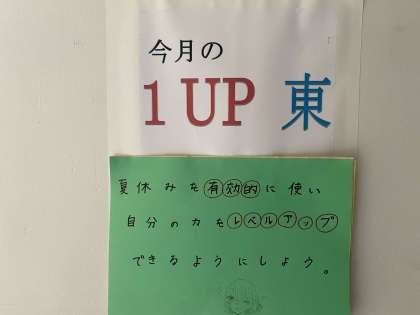 今月の
1UP 東
夏休みを有効的に使い
自分の力をレベルアップ
できるようにしよう。